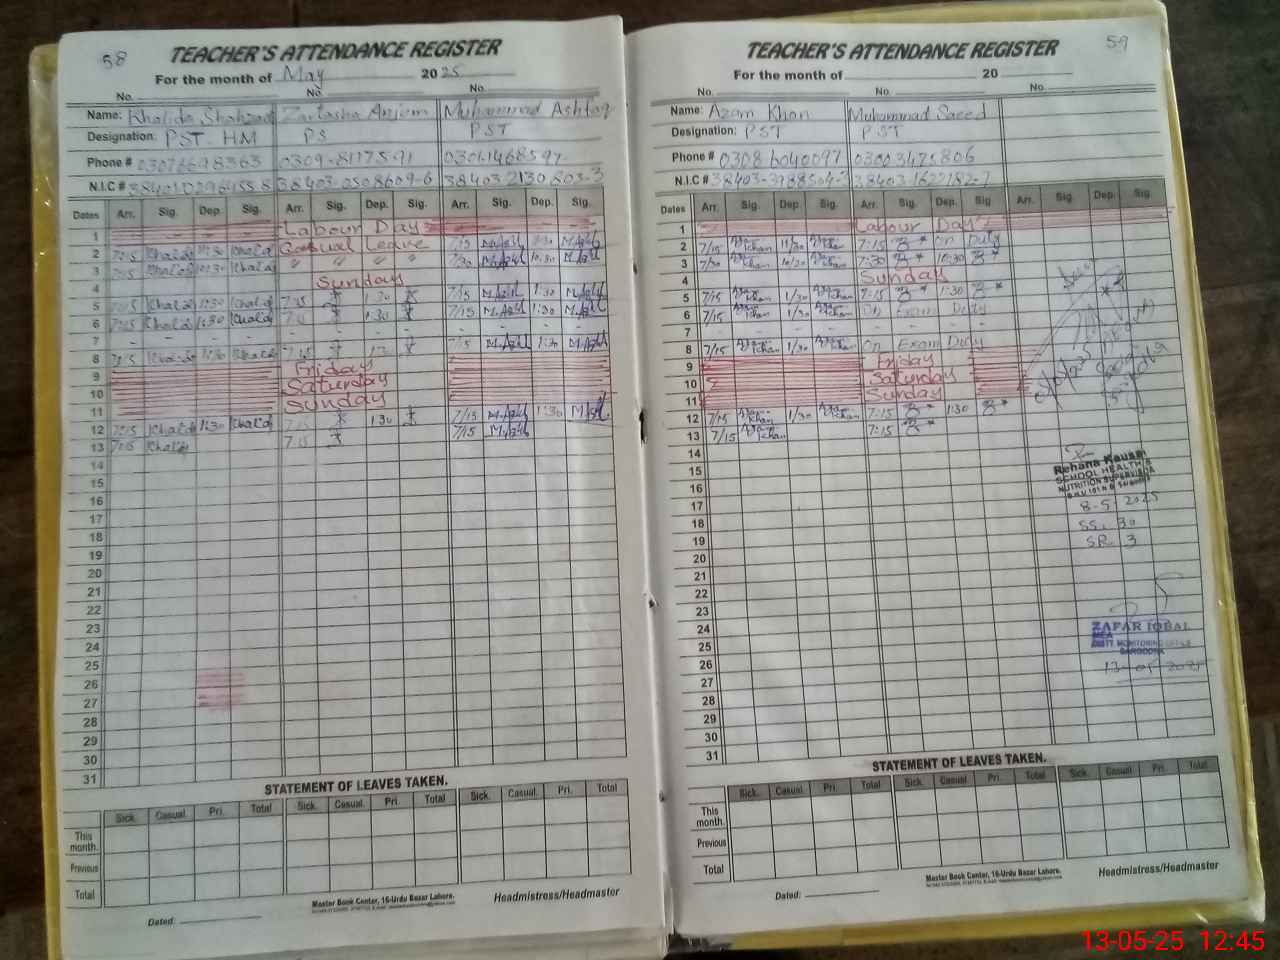 58
TEACHER'S ATTENDANCE REGISTER
For the month of May 2025
No. No. No.
Name: Khalida Shahzad Zartasha Anjum Muhammad Ashfaq
Designation: PST. HM PS PST
Phone # 03076698363 0309-8117591
N.I.C #
Dates Arr. Sig. Dep. Sig. Arr. Sig. Dep. Sig. Arr. Sig. Dep. Sig.
1 Labour Day
2 7:15 Khalid 11:30 Khalid Casual Leave 7/15 M.Ashf M.Ashf
3 7:15 Khalid 10:30 Khalid " " " " 7/30 M.Ashf 10:30 M.Ashf
4 Sunday
5 7:15 Khalid 1:30 Khalid 7:15 1:30 7/15 M.Ashf 1:30 M.Ashf
6 7:15 Khalid 1:30 Khalid 7:15 1:30 7/15 M.Ashf 1:30 M.Ashf
7 - - - - - - - - - - - -
8 7:15 Khalid 1:30 Khalid 7:15 7/15 M.Ashf 1:30 M.Ashf
9 Friday
10 Saturday
11 Sunday
12 7:15 Khalid 1:30 Khalid 7:15 1:30 7/15 M.Ashf 1:30 M.Ashf
13 7:15 Khalid 7:15 7/15 M.Ashf
14
15
16
17
18
19
20
21
22
23
24
25
26
27
28
29
30
31
STATEMENT OF LEAVES TAKEN.
Sick. Casual. Pri. Total Sick. Casual. Pri. Total Sick. Casual. Pri. Total
This month.
Previous
Total
Master Book Center, 16-Urdu Bazar Lahore.
Headmistress/Headmaster
Dated:
59
TEACHER'S ATTENDANCE REGISTER
For the month of 20
No. No. No.
Name: Azam Khan Muhammad Saeed
Designation: PST PST
Phone # 0308 6040097
N.I.C #
Dates Arr. Sig. Dep. Sig. Arr. Sig. Dep. Sig. Arr. Sig. Dep. Sig.
1 Labour Day
2 7/15 Khan 11/30 Khan 7:15 On Duty
3 7/30 Khan 10/30 Khan 7:30 10:30
4 Sunday
5 7/15 Khan 1/30 Khan 7:15 1:30
6 7/15 Khan 1/30 Khan On Exam Duty
7 - - - - - - - -
8 7/15 Khan 1/30 Khan On Exam Duty
9 Friday
10 Saturday
11 Sunday
12 7/15 Khan 1/30 Khan 7:15 1:30
13 7/15 Khan 7:15
14
15
16
17
18
19
20
21
22
23
24
25
26
27
28
29
30
31
Rehana Kausar
SCHOOL HEALTH &
NUTRITION SUPERVISOR
8-5 2025
SS. 30
SR 3
ZAFAR IQBAL
MEA
DISTT. MONITORING OFFICE
SARGODHA
STATEMENT OF LEAVES TAKEN.
Sick. Casual. Pri. Total Sick. Casual. Pri. Total Sick. Casual. Pri. Total
This month.
Previous
Total
Master Book Center, 16-Urdu Bazar Lahore.
Headmistress/Headmaster
Dated:
13-05-25 12:45